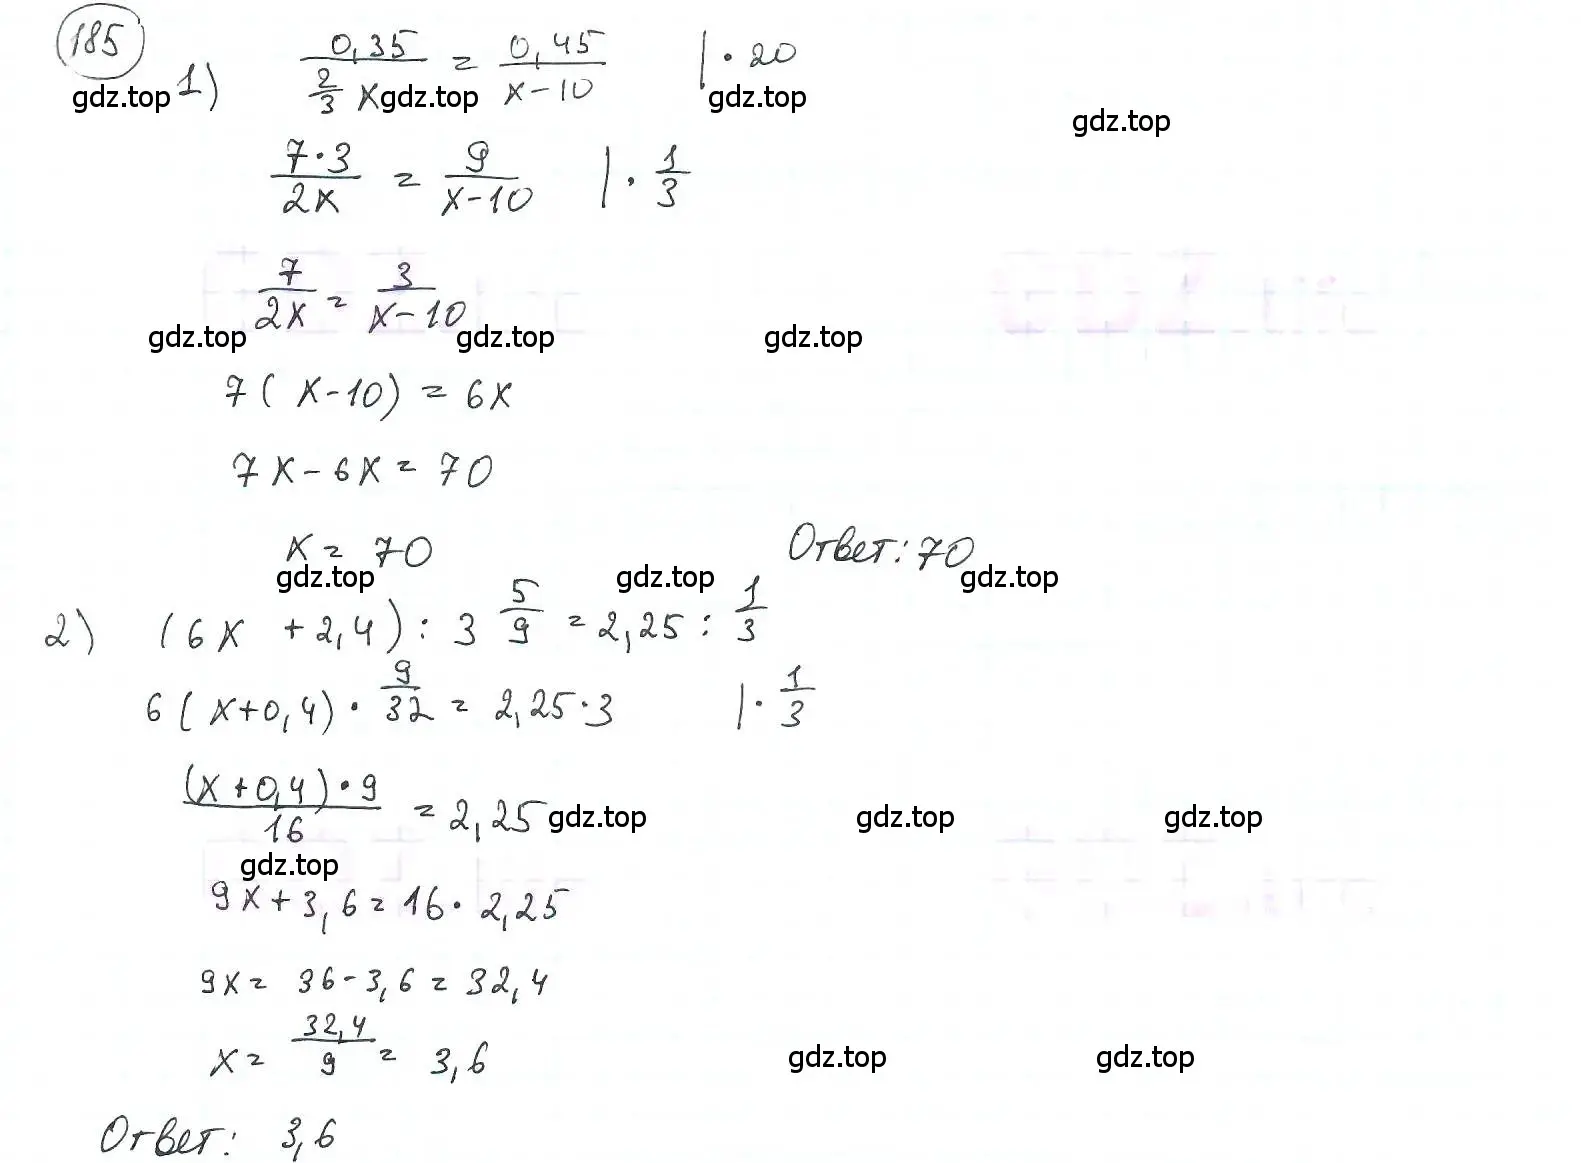 185
1) 0,35 / (2/3 x) = 0,45 / (x-10) | · 20
gdz.top gdz.top gdz.top gdz.top
7·3 / 2x = 9 / (x-10) | · 1/3
7 / 2x = 3 / (x-10)
gdz.top gdz.top gdz.top
7(x-10) = 6x
7x - 6x = 70
x = 70 Ответ: 70
gdz.top gdz.top gdz.top
2) (6x + 2,4) : 3 5/9 = 2,25 : 1/3
6(x+0,4) · 9/32 = 2,25·3 | · 1/3
(x+0,4)·9 / 16 = 2,25 gdz.top gdz.top gdz.top
gdz.top
9x + 3,6 = 16 · 2,25
9x = 36 - 3,6 = 32,4
x = 32,4 / 9 = 3,6 gdz.top gdz.top
Ответ: 3,6